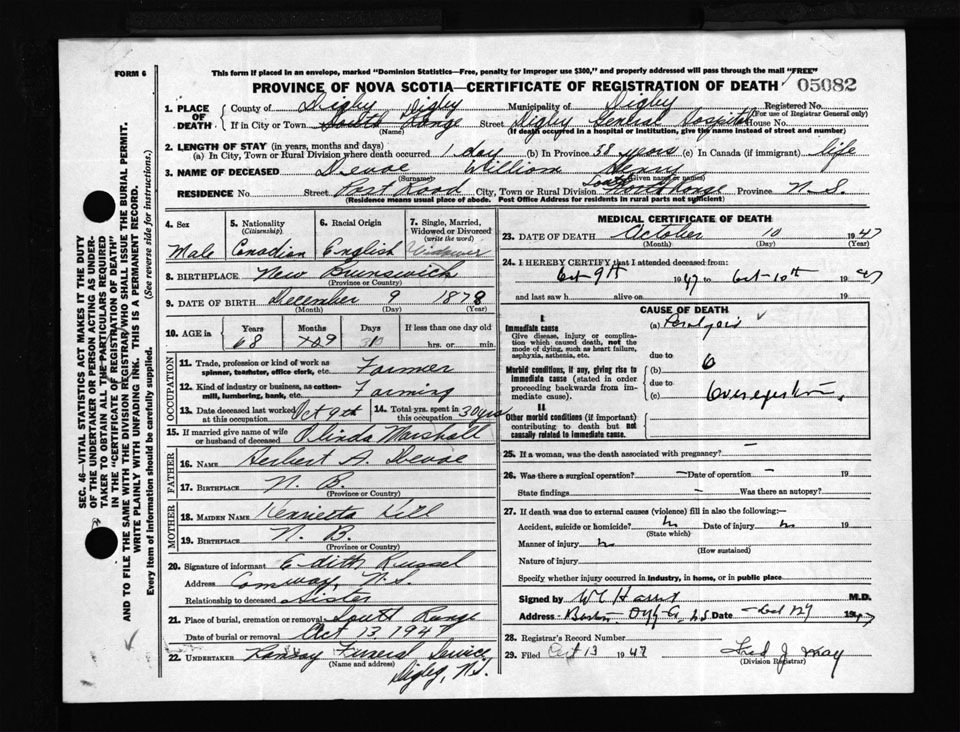 FORM 6
This form if placed in an envelope, marked "Dominion Statistics—Free, penalty for improper use $300," and properly addressed will pass through the mail "FREE"
PROVINCE OF NOVA SCOTIA—CERTIFICATE OF REGISTRATION OF DEATH
05082
1. PLACE OF DEATH
County of Digby Digby Municipality of Digby Registered No.
(For use of Registrar General only)
If in City or Town South Range Street Digby General Hospital House No.
(Name) (If death occurred in a hospital or institution, give the name instead of street and number)
2. LENGTH OF STAY (in years, months and days)
(a) In City, Town or Rural Division where death occurred 1 day (b) In Province 38 years (c) In Canada (if immigrant) life
3. NAME OF DECEASED Devoe William Henry
(Surname) (Given name or names)
RESIDENCE No. Street Post Road City, Town or Rural Division South Range Province N.S.
(Residence means usual place of abode. Post Office Address for residents in rural parts not sufficient)
4. Sex
Male
5. Nationality
(Citizenship)
Canadian
6. Racial Origin
English
7. Single, Married, Widowed or Divorced
(write the word)
Widower
8. BIRTHPLACE New Brunswick
(Province or Country)
9. DATE OF BIRTH December 9 1878
(Month) (Day) (Year)
10. AGE in Years Months Days If less than one day old
68 hrs. or min.
OCCUPATION
11. Trade, profession or kind of work as spinner, teamster, office clerk, etc. Farmer
12. Kind of industry or business, as cotton-mill, lumbering, bank, etc. Farming
13. Date deceased last worked at this occupation Oct 9th
14. Total yrs. spent in this occupation 30 yrs
15. If married give name of wife or husband of deceased Olinda Marshall
FATHER
16. NAME Herbert A. Devoe
17. BIRTHPLACE N. B.
(Province or Country)
MOTHER
18. MAIDEN NAME Henrietta Hill
19. BIRTHPLACE N. B.
(Province or Country)
20. Signature of informant Edith Russel
Address Conway, N.S.
Relationship to deceased Sister
21. Place of burial, cremation or removal South Range
Date of burial or removal Oct 13, 1947
22. UNDERTAKER Ramsay Funeral Service
(Name and address)
Digby, N.S.
MEDICAL CERTIFICATE OF DEATH
23. DATE OF DEATH October 10 1947
(Month) (Day) (Year)
24. I HEREBY CERTIFY that I attended deceased from:
Oct 9th 1947 to Oct-10th 1947
and last saw h alive on 19
CAUSE OF DEATH
I.
Immediate cause
Give disease, injury or complication which caused death, not the mode of dying, such as heart failure, asphyxia, asthenia, etc.
(a)
due to
Morbid conditions, if any, giving rise to immediate cause (stated in order proceeding backwards from immediate cause).
(b)
due to
(c)
II.
Other morbid conditions (if important) contributing to death but not causally related to immediate cause.
25. If a woman, was the death associated with pregnancy? —
26. Was there a surgical operation? — Date of operation — 19
State findings — Was there an autopsy?
27. If death was due to external causes (violence) fill in also the following:—
Accident, suicide or homicide? no Date of injury no 19
(State which)
Manner of injury no
(How sustained)
Nature of injury
Specify whether injury occurred in industry, in home, or in public place
Signed by M.D.
Address Date 1947
28. Registrar's Record Number
29. Filed Oct 13 1947 Fred J. May
(Division Registrar)
SEC. 46—VITAL STATISTICS ACT MAKES IT THE DUTY
OF THE UNDERTAKER OR PERSON ACTING AS UNDER-
TAKER TO OBTAIN ALL THE PARTICULARS REQUIRED
IN THE "CERTIFICATE OF REGISTRATION OF DEATH"
AND TO FILE THE SAME WITH THE DIVISION REGISTRAR WHO SHALL ISSUE THE BURIAL PERMIT.
WRITE PLAINLY WITH UNFADING INK. THIS IS A PERMANENT RECORD.
Every item of information should be carefully supplied. (See reverse side for instructions.)